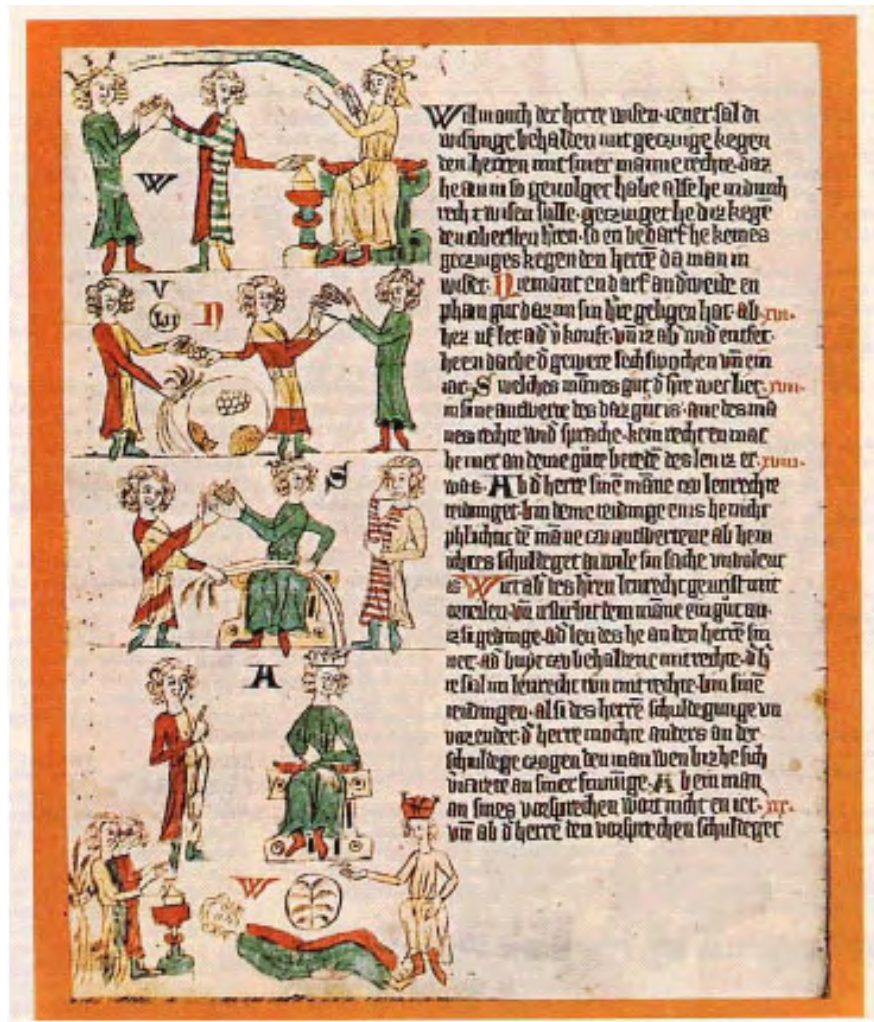 Wil in ouch der herre wisen. iener sal di
wisunge behalden mit geczuige kegen
den herren mit siner manne rechte. daz
he an in so gevolget habe alse he in durch
recht wisen sulle. geczuiget he diz kegē
den obersten hren. so en bedarf he keines
geczuiges kegen den herrē da man in
wiset. Niemant en darf andwerde en
phan gut daz an sin hre geligen hat. ab xvi.
hez uf let ad vkouft. vn iz ab wid entfet.
he en darbe d gewere sechs wochen vn ein
iar. Swelches mānes gut d hre wer let. xvii.
in sine antwerte des daz gut is. ane des ma
nes rechte wid sprache. kein recht en mac
he mer an deme gute beredē des len iz er. xviii.
was. Ab d herre sinē māne czu lenrechte
teidinget. bin deme teidinge en is he nicht
phlichtic dē māne czu antwertene ab he in
ichtes schuldeget di wile sin sache unvolent
is Wirt ab des hren lenrecht geweist mit
orteilen. vn irstirbit dem māne ein gut an.
iz si gedinge. ad len des he an den herrē sin
net. ad butet czu behaldene mit rechte. d h
re sal im lenrecht tun mit rechte. bin sinē
teidingen. al si des herrē schuldegunge un
vorendet. d herre mochte anders an der
schuldege czogen den man wen biz he sich
vor iarte an siner sinnunge. Ab ein man
an sines vorsprechen wort nicht en iet. xix.
vn ab d herre den vorsprechen schuldeget
W
V
LII
N
S
A
W